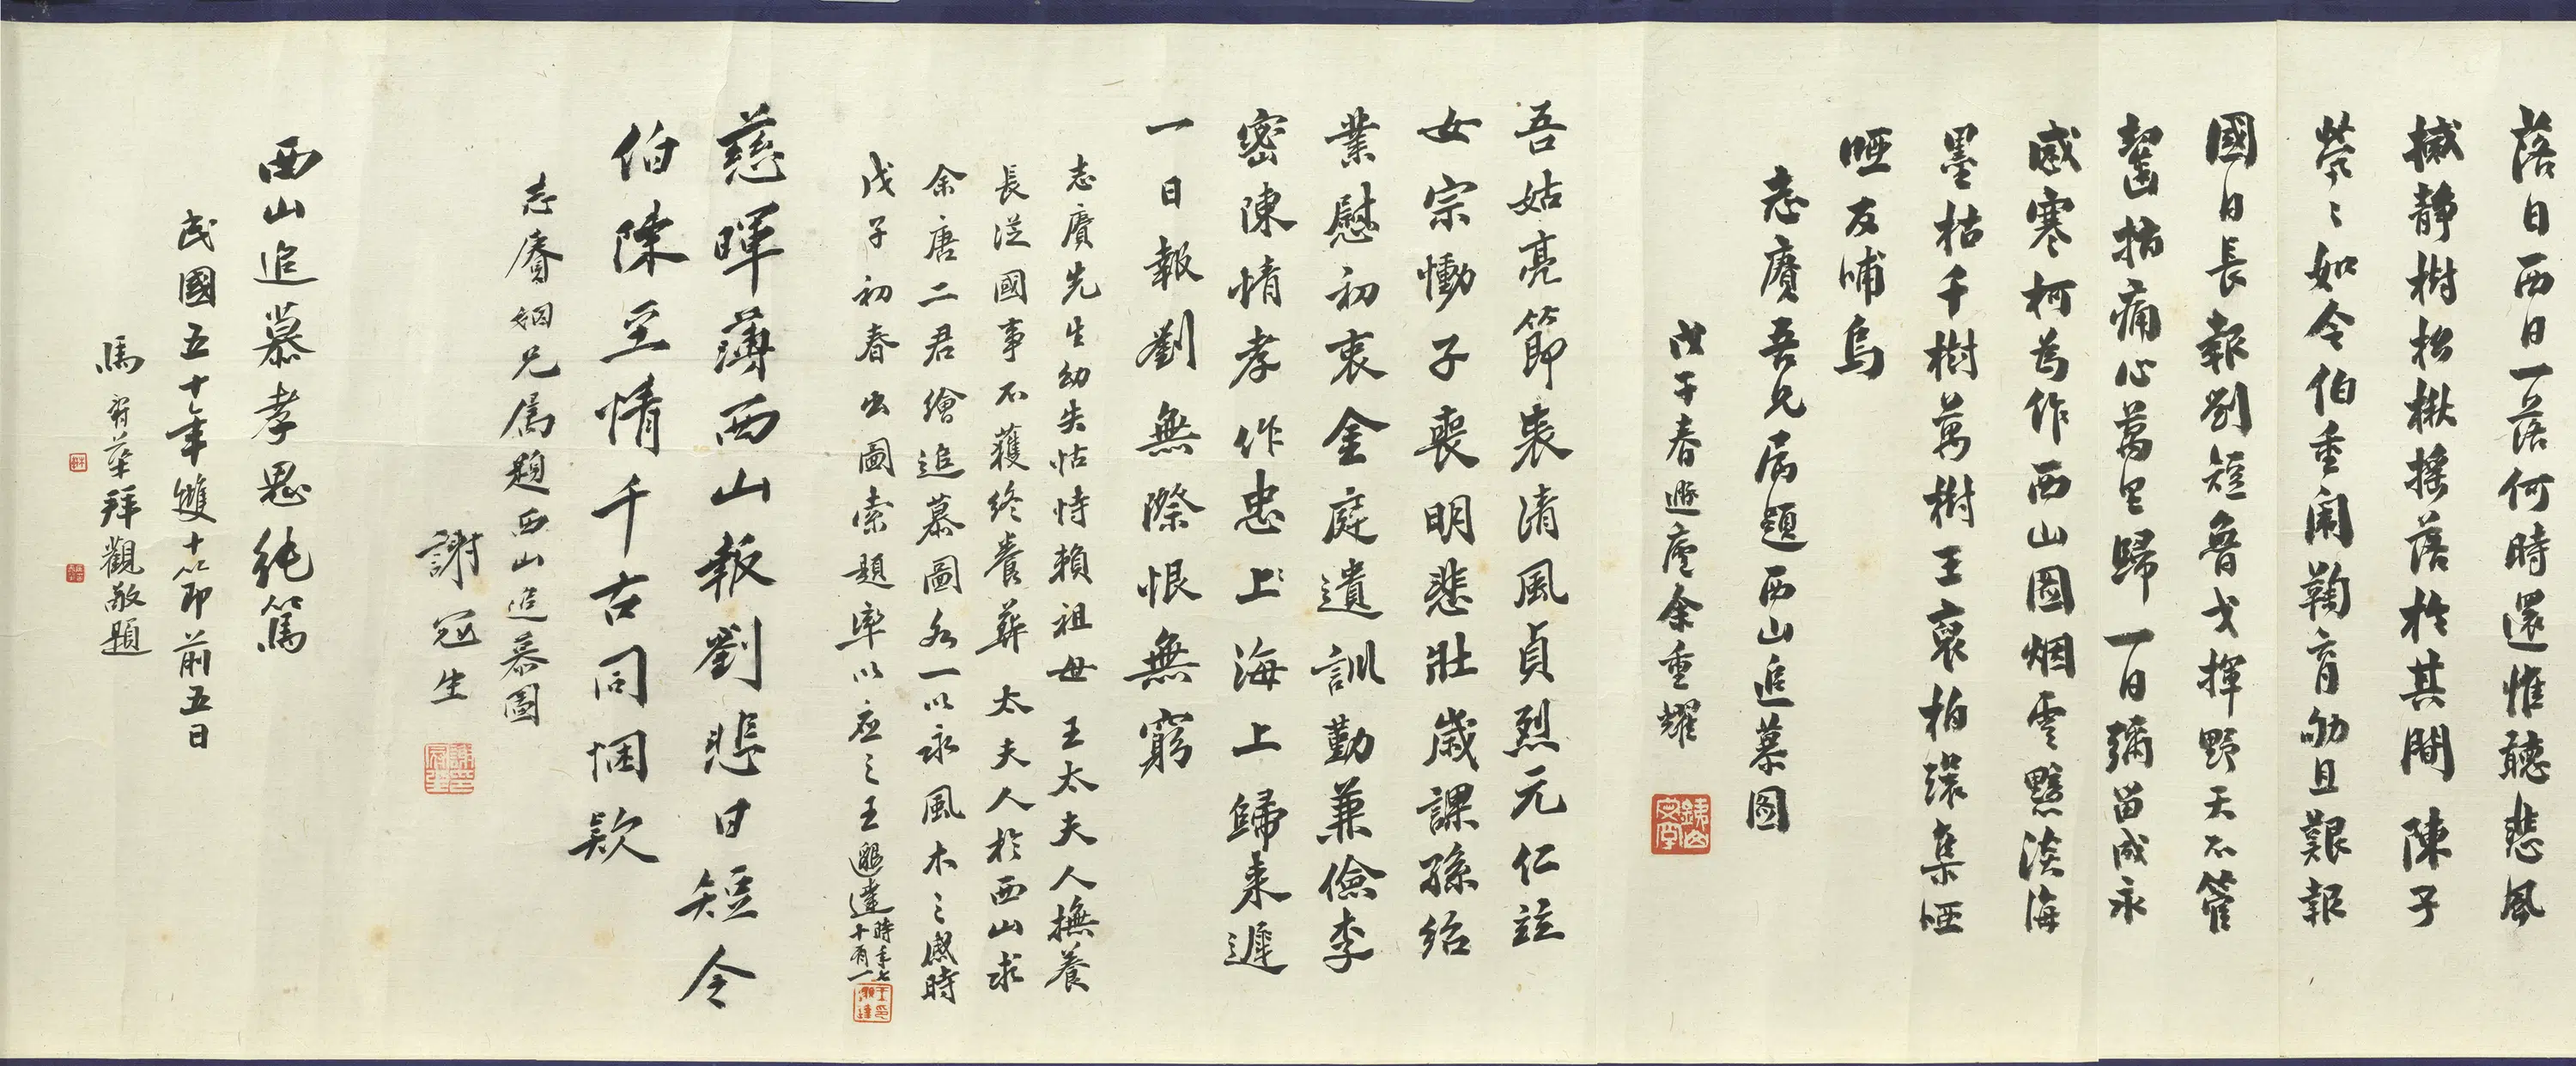 落日西日一落何時還惟聽悲風
撼靜樹松楸搖落於其間陳子
煢〻如令伯重闈鞠育劬且艱報
國日長報劉短魯戈揮野天不管
齧指痛心萬里歸一日彌留成永
感寒柯為作西山圖烟雲黯淡海
墨枯千樹萬樹王裒柏環集啞
啞反哺烏
志賡吾兄屬題西山追慕圖
戊子春遯廬余重耀
吾姑亮節表清風貞烈元仁竝
女宗慟子喪明悲壯歲課孫紹
業慰初衷金庭遺訓勤兼儉李
密陳情孝作忠上海上歸來遲
一日報劉無際恨無窮
志賡先生幼失怙恃賴祖母王太夫人撫養
長從國事不獲終養葬太夫人於西山求
余唐二君繪追慕圖各一以永風木之感時
戊子初春出圖索題率以應之王邈達時年七
十有一
慈暉薄西山報劉悲日短令
伯陳至情千古同悃款
志賡姻兄屬題西山追慕圖
謝冠生
西山追慕孝思純篤
民國五十年雙十節前五日
馬壽華拜觀敬題